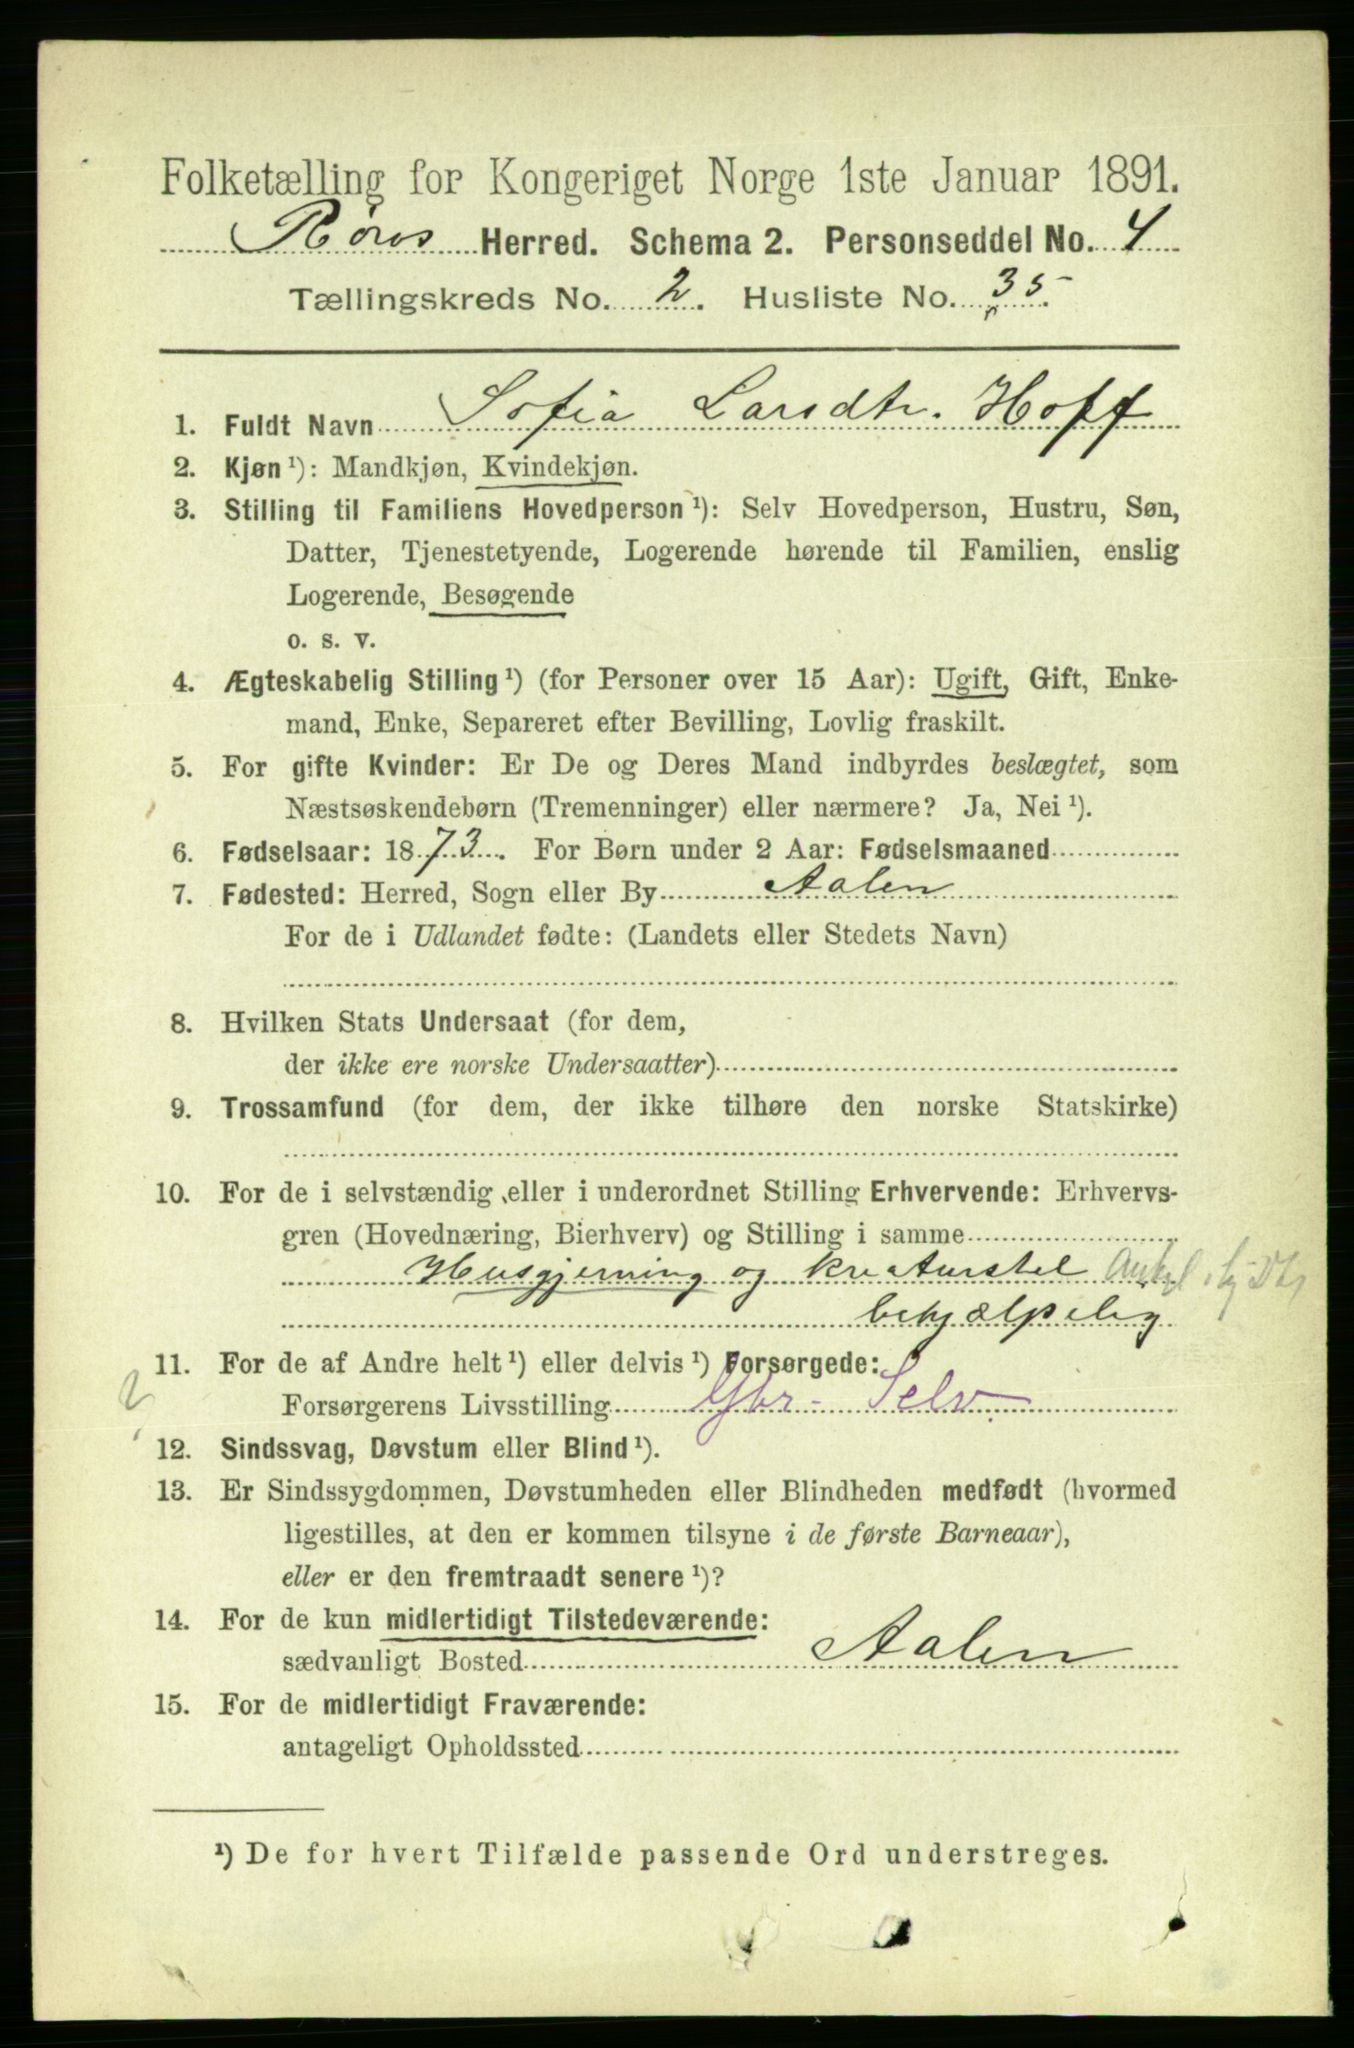 Folketælling for Kongeriget Norge 1ste Januar 1891.
Røros Herred. Schema 2. Personseddel No. 4
Tællingskreds No. 2. Husliste No. 35.
1. Fuldt Navn Sofia Larsdtr. Hoff
2. Kjøn ¹): Mandkjøn, Kvindekjøn.
3. Stilling til Familiens Hovedperson ¹): Selv Hovedperson, Hustru, Søn,
Datter, Tjenestetyende, Logerende hørende til Familien, enslig
Logerende, Besøgende
o. s. v.
4. Ægteskabelig Stilling ¹) (for Personer over 15 Aar): Ugift, Gift, Enke-
mand, Enke, Separeret efter Bevilling, Lovlig fraskilt.
5. For gifte Kvinder: Er De og Deres Mand indbyrdes beslægtet, som
Næstsøskendebørn (Tremenninger) eller nærmere? Ja, Nei ¹).
6. Fødselsaar: 1873. For Børn under 2 Aar: Fødselsmaaned
7. Fødested: Herred, Sogn eller By Aalen
For de i Udlandet fødte: (Landets eller Stedets Navn)
8. Hvilken Stats Undersaat (for dem,
der ikke ere norske Undersaatter)
9. Trossamfund (for dem, der ikke tilhøre den norske Statskirke)
10. For de i selvstændig eller i underordnet Stilling Erhvervende: Erhvervs-
gren (Hovednæring, Bierhverv) og Stilling i samme
Husgjerning og kreaturstel
behjælpelig
11. For de af Andre helt ¹) eller delvis ¹) Forsørgede:
Forsørgerens Livsstilling Gbr - Selv
12. Sindssvag, Døvstum eller Blind ¹).
13. Er Sindssygdommen, Døvstumheden eller Blindheden medfødt (hvormed
ligestilles, at den er kommen tilsyne i de første Barneaar),
eller er den fremtraadt senere ¹)?
14. For de kun midlertidigt Tilstedeværende:
sædvanligt Bosted Aalen
15. For de midlertidigt Fraværende:
antageligt Opholdssted
¹) De for hvert Tilfælde passende Ord understreges.